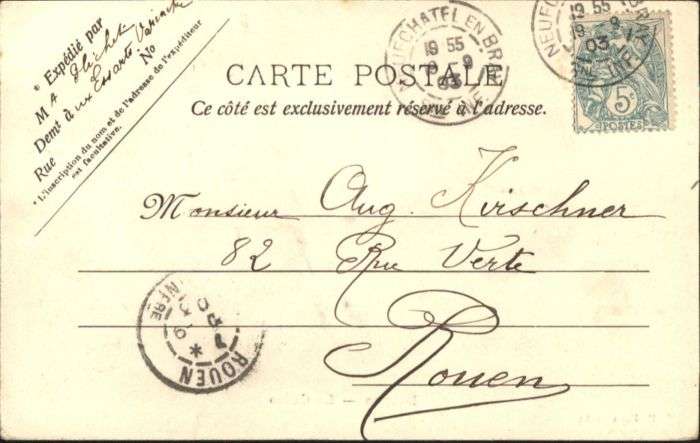 * Expédié par
M A
Dem^t à aux Essarts Varimpré
Rue No
* L'inscription du nom et de l'adresse de l'expéditeur
est facultative.
NEUFCHATEL EN BRAY
19 55
9 9
03
NEUFC
19 55
9 9
03
5c
POSTES
CARTE POSTALE
Ce côté est exclusivement réservé à l'adresse.
Monsieur Aug. Kirschner
82 Rue Verte
Rouen
ROUEN